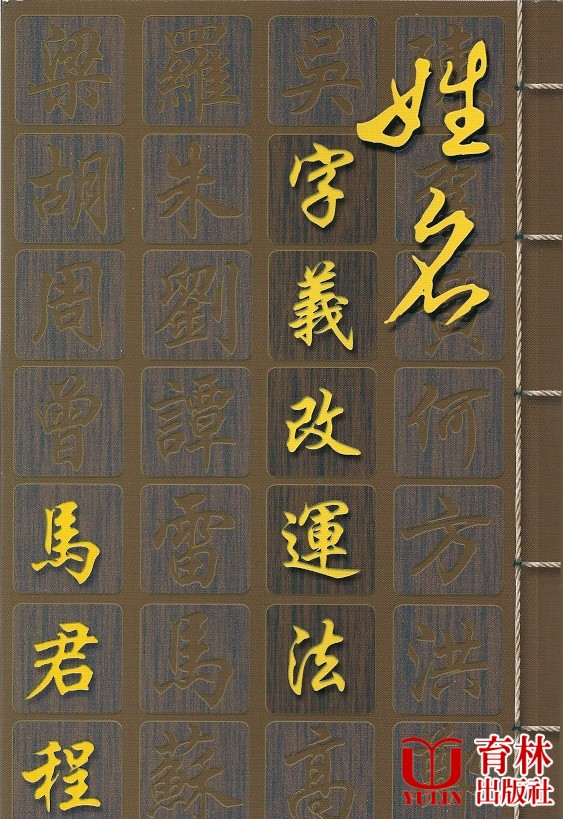 姓名
字義改運法
馬君程
陳
何方洪
吳
高
羅朱劉譚雷馬蘇
梁胡周曾
YULIN
育林
出版社